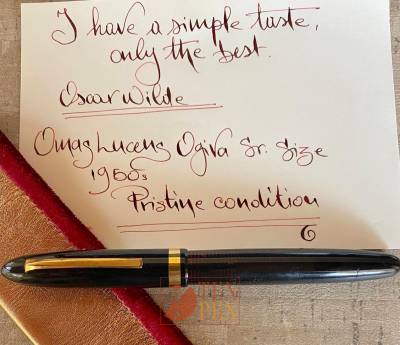 I have a simple taste,
only the best.
Oscar Wilde
Omas Lucens Ogiva Sr. Size
1950s
Pristine condition
PEN